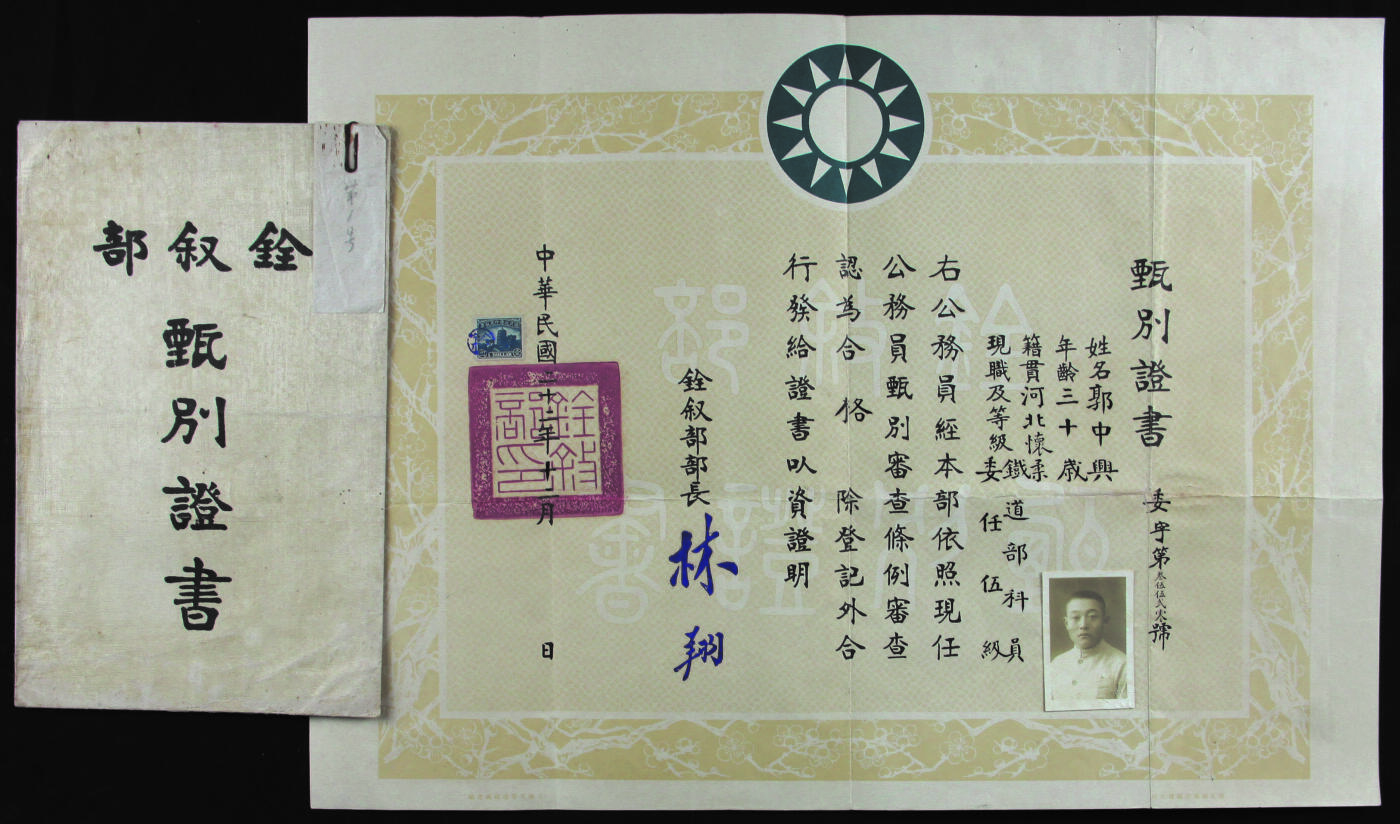 第1号
銓叙部
甄別證書
甄別證書
委字第叁伍伍弍零號
姓名郭中興
年齡三十歲
籍貫河北懷柔
現職及等級鐵道部科員
委任伍級
右公務員經本部依照現任
公務員甄別審查條例審查
認為合格除登記外合
行發給證書以資證明
銓叙部部長林翔
中華民國二十二年十二月日
銓敘部印
銓敘部
甄別證書